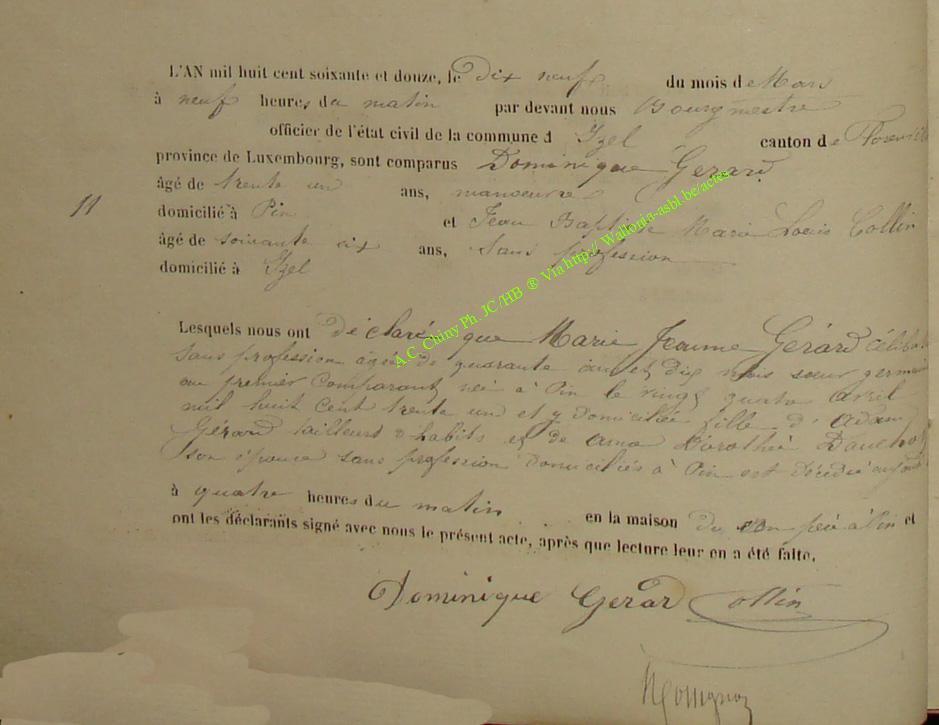 L'AN mil huit cent soixante et douze, le Dix neuf du mois de Mars
à neuf heures du matin par devant nous Bourgmestre
officier de l'état civil de la commune d Izel canton de Florenville
province de Luxembourg, sont comparus Dominique Gerard
âgé de trente un ans, manoeuvre
11
domicilié à Pin et Jean Baptiste Marie Louis Collin
âgé de soixante six ans, Sans profession
domicilié à Izel
A.C. Chiny Ph. JC/HB ® Via http// Wallonia-asbl.be/actes
Lesquels nous ont déclaré que Marie Jeanne Gérard céliba
Sans profession âgée de quarante ans et Dix mois sœur germai
au premier Comparant née à Pin le vingt quatre avril
mil huit cent trente un et y domiciliée fille d'Adam
Gérard tailleur d'habits et de Anna Dorothée
son épouse sans profession domiciliés à Pin est décédée
à quatre heures du matin en la maison du père à Pin et
ont les déclarants signé avec nous le présent acte, après que lecture leur en a été faite.
Dominique Gerard Collin